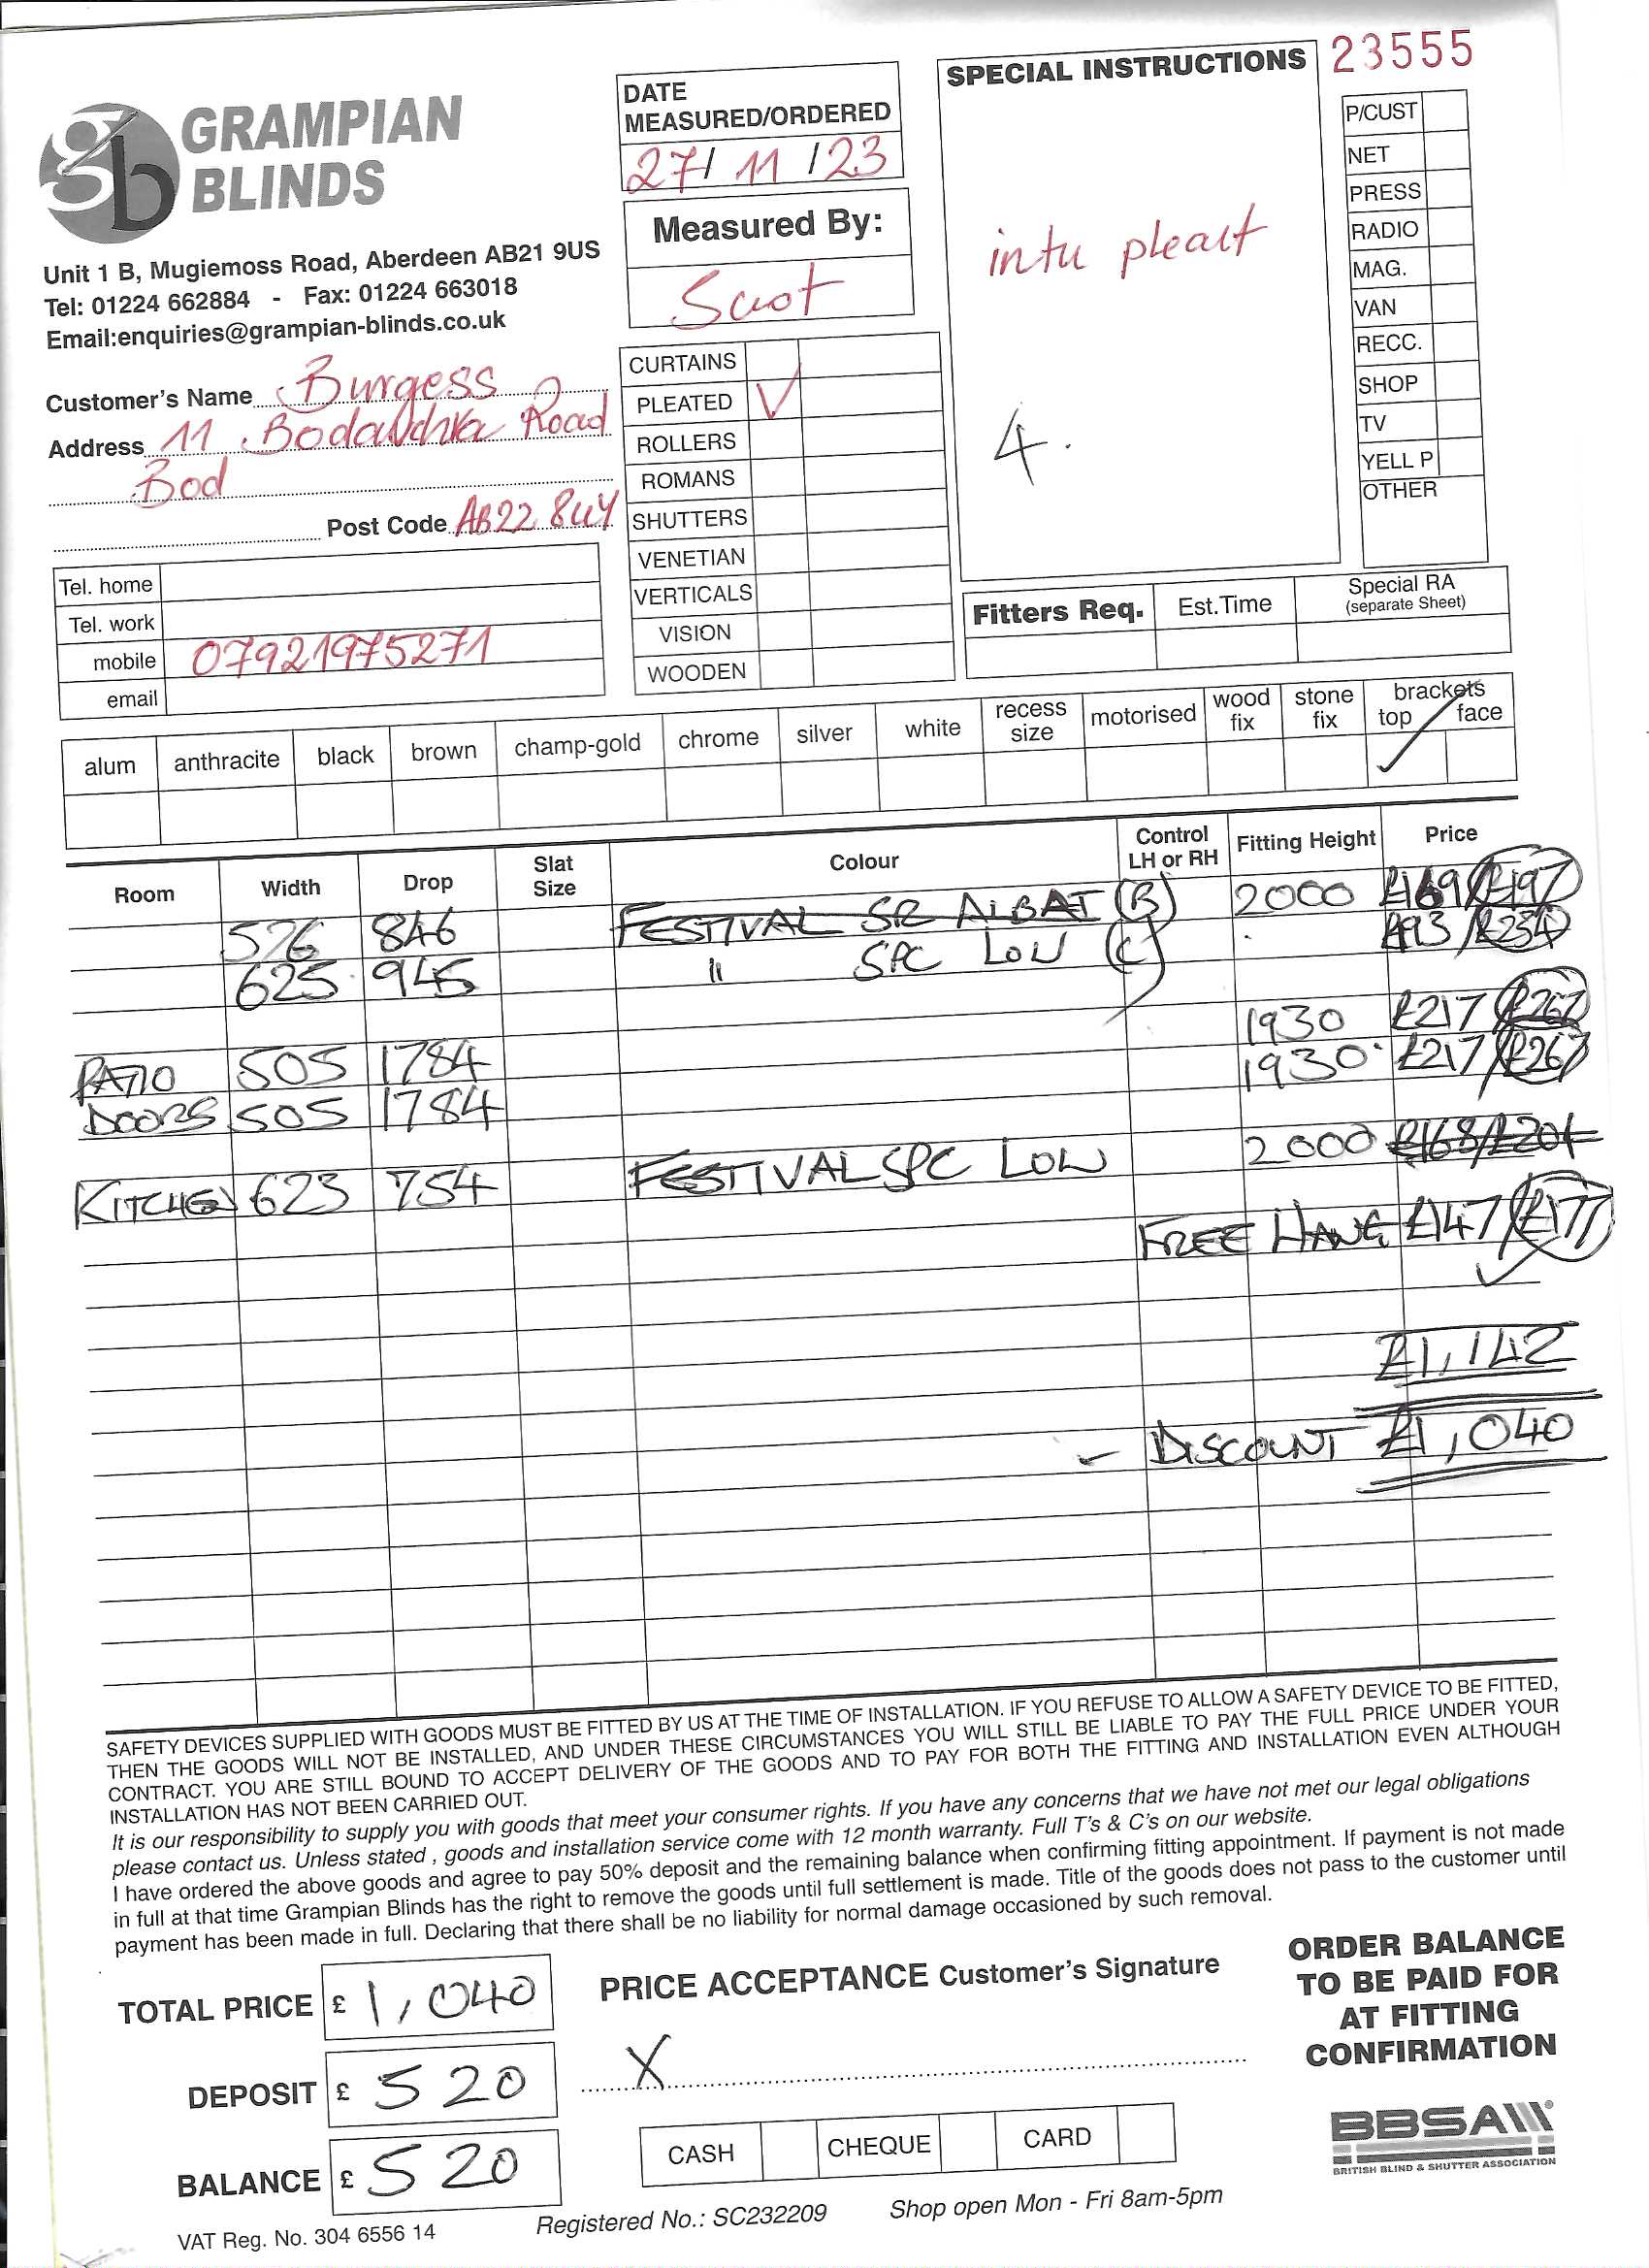 23555
GRAMPIAN
BLINDS
Unit 1 B, Mugiemoss Road, Aberdeen AB21 9US
Tel: 01224 662884 - Fax: 01224 663018
Email:enquiries@grampian-blinds.co.uk
Customer's Name Burgess
Address 11 Road
Bod
Post Code AB22 8UY
Tel. home
Tel. work
mobile 07921975271
email
DATE
MEASURED/ORDERED
27/ 11 /23
Measured By:
CURTAINS
PLEATED ✓
ROLLERS
ROMANS
SHUTTERS
VENETIAN
VERTICALS
VISION
WOODEN
SPECIAL INSTRUCTIONS
intu pleat
4.
P/CUST
NET
PRESS
RADIO
MAG.
VAN
RECC.
SHOP
TV
YELL P
OTHER
Fitters Req. Est.Time Special RA
(separate Sheet)
alum anthracite black brown champ-gold chrome silver white recess size motorised wood fix stone fix brackets top face
Room Width Drop Slat Size Colour Control LH or RH Fitting Height Price
526 846 FESTIVAL SR ALBAT (B) 2000 £169/£197
625 945 " SPC LOW (C) £193/£234
PATIO 505 1784 1930 £217/£267
DOORS 505 1784 1930 £217/£267
KITCHEN 623 754 FESTIVAL SPC LOW 2000 £168/£204
FREE HANG £147/£177
£1,142
- DISCOUNT £1,040
SAFETY DEVICES SUPPLIED WITH GOODS MUST BE FITTED BY US AT THE TIME OF INSTALLATION. IF YOU REFUSE TO ALLOW A SAFETY DEVICE TO BE FITTED,
THEN THE GOODS WILL NOT BE INSTALLED, AND UNDER THESE CIRCUMSTANCES YOU WILL STILL BE LIABLE TO PAY THE FULL PRICE UNDER YOUR
CONTRACT. YOU ARE STILL BOUND TO ACCEPT DELIVERY OF THE GOODS AND TO PAY FOR BOTH THE FITTING AND INSTALLATION EVEN ALTHOUGH
INSTALLATION HAS NOT BEEN CARRIED OUT.
It is our responsibility to supply you with goods that meet your consumer rights. If you have any concerns that we have not met our legal obligations
please contact us. Unless stated , goods and installation service come with 12 month warranty. Full T's & C's on our website.
I have ordered the above goods and agree to pay 50% deposit and the remaining balance when confirming fitting appointment. If payment is not made
in full at that time Grampian Blinds has the right to remove the goods until full settlement is made. Title of the goods does not pass to the customer until
payment has been made in full. Declaring that there shall be no liability for normal damage occasioned by such removal.
TOTAL PRICE £ 1,040
DEPOSIT £ 520
BALANCE £ 520
PRICE ACCEPTANCE Customer's Signature
X
CASH CHEQUE CARD
ORDER BALANCE
TO BE PAID FOR
AT FITTING
CONFIRMATION
BBSA
BRITISH BLIND & SHUTTER ASSOCIATION
VAT Reg. No. 304 6556 14
Registered No.: SC232209
Shop open Mon - Fri 8am-5pm